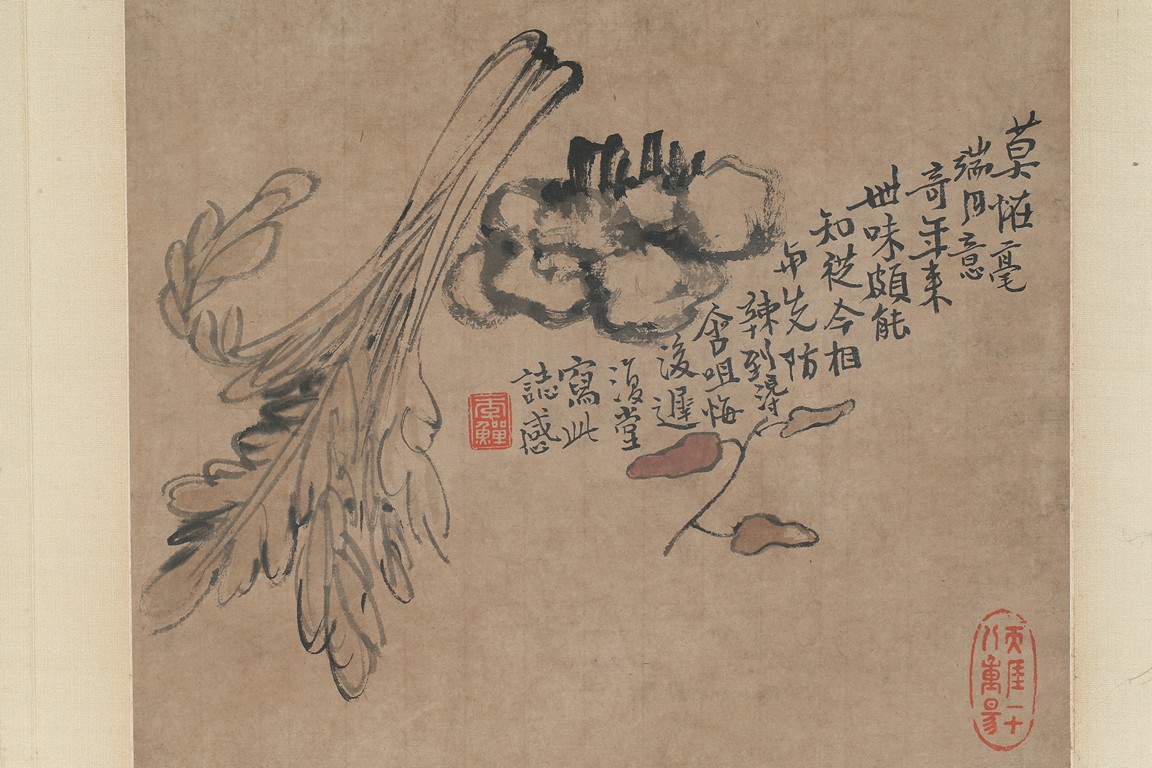 莫恠毫
端用意
奇年来
世味頗能
知從今相
与先防
辣到淂
含咀悔
後遲
復堂
寫此
誌感
李鱓